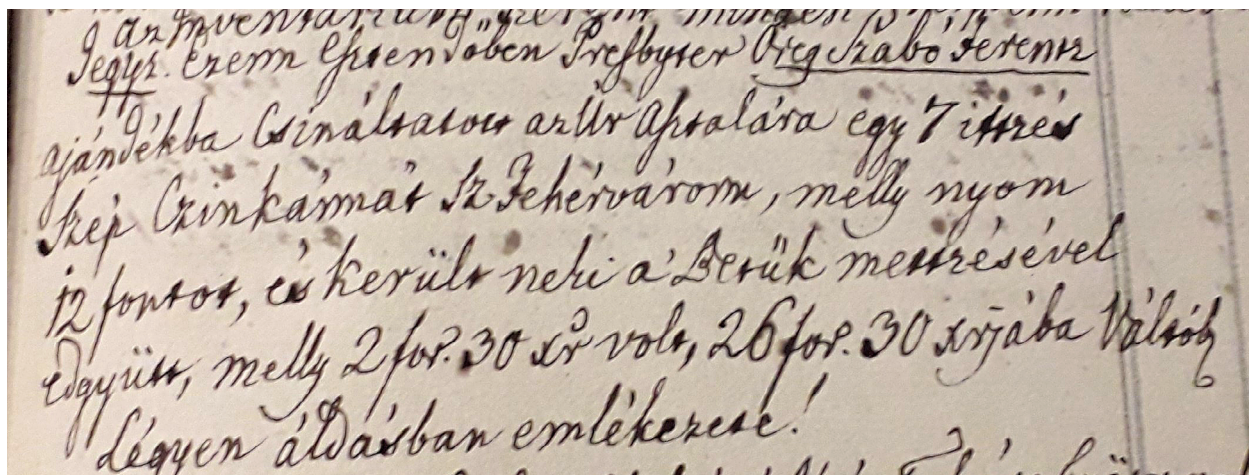 az Inventáriuma szerént minden
Jegyz. Ezenn Esztendőben Presbyter Öreg Szabó Ferentz
ajándékba Csináltatott az Úr Asztalára egy 7 ittzés
Szép Czinkánnát Sz. Fehérváronn, melly nyom
12 fontot, és került neki a' Betük mettzésével
edgyütt, melly 2 for. 30 xr volt, 26 for. 30 xrjába Váltób
Légyen áldásban emlékezete!